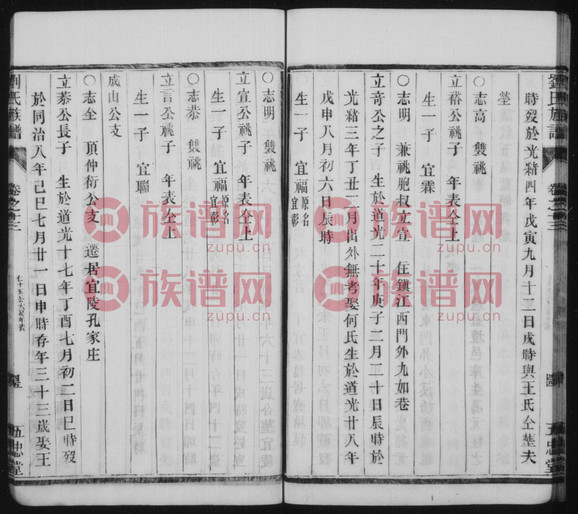 劉氏族譜
卷之十三
五忠堂
時歿於光緒四年戊寅九月十二日戌時與王氏仝塟夫
塋
○志高 雙祧
立裕公祧子 年表仝上
生一子 宜霖
○志明 兼祧胞叔立宣 住鎮江西門外九如巷
立奇公之子 生於道光二十年庚子二月二十日辰時於
光緒三年丁丑二月出外無耗娶何氏生於道光廿八年
戊申八月初六日辰時
生一子 宜福原名宜彰
○志明 雙祧
立宣公祧子 年表仝上
生一子 宜福原名宜彰
○志恭 雙祧
立言公祧子 年表仝上
生一子 宜聯
成山公支
○志全 頂仲衍公支 遷居宜陵孔家庄
立蓁公長子 生於道光十七年丁酉七月初二日巳時歿
於同治八年己巳七月廿一日申時存年三十三歲娶王
劉氏族譜
卷之十三
五忠堂
族谱网
zupu.cn
族谱网
zupu.cn
族谱网
zupu.cn
族谱网
zupu.cn